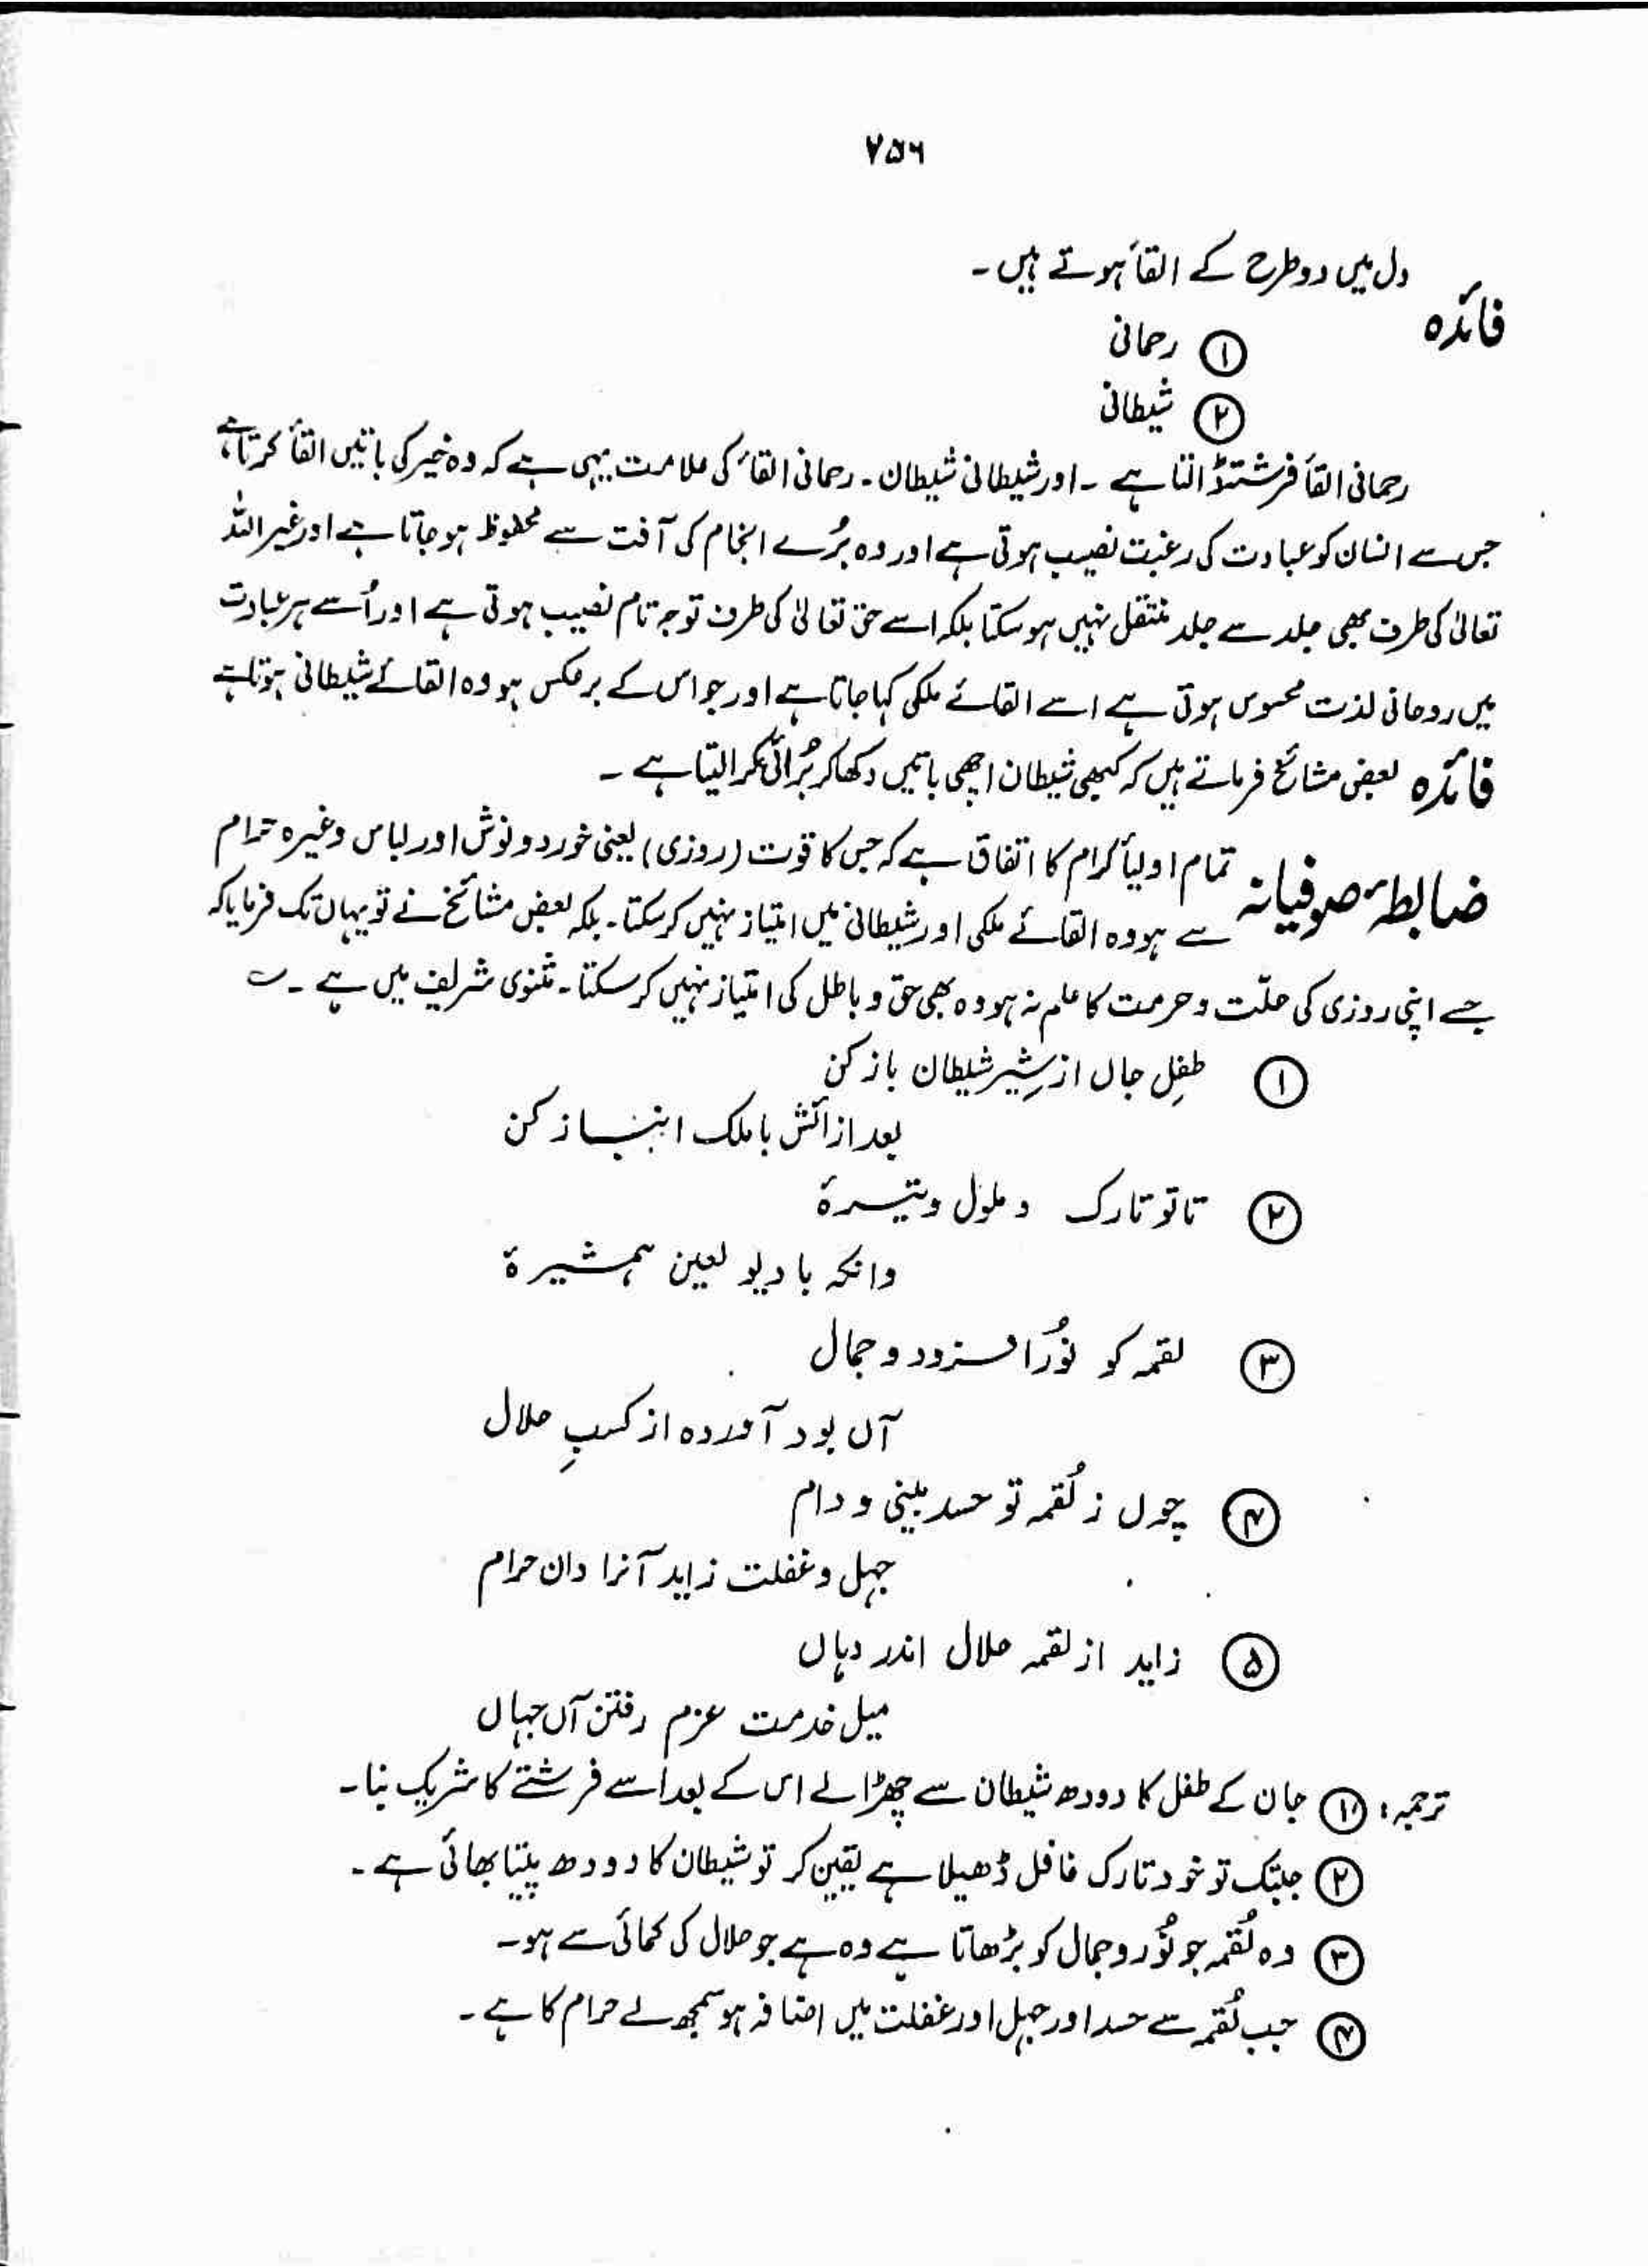 ۷۵۶
دل میں دو طرح کے القأ ہوتے ہیں۔
فائدہ
① رحمانی
② شیطانی
رحمانی القأ فرشتہ ڈالتا ہے ۔ اور شیطانی شیطان ۔ رحمانی القأ کی علامت یہی ہے کہ وہ خیر کی باتیں القأ کرتا ہے
جس سے انسان کو عبادت کی رغبت نصیب ہوتی ہے اور وہ بُرے انجام کی آفت سے محظوظ ہو جاتا ہے اور غیر اللہ
تعالیٰ کی طرف بھی جلد سے جلد منتقل نہیں ہو سکتا بلکہ اسے حق تعالیٰ کی طرف توجہ تام نصیب ہوتی ہے اور اُسے ہر عبادت
میں روحانی لذت محسوس ہوتی ہے اسے القائے ملکی کہا جاتا ہے اور جو اس کے برعکس ہو وہ القائے شیطانی ہوتا ہے
فائدہ بعض مشائخ فرماتے ہیں کہ کبھی شیطان اچھی باتیں دکھا کر بُرائی کرا لیتا ہے ۔
تمام اولیأ کرام کا اتفاق ہے کہ جس کا قوت (روزی) یعنی خورد و نوش اور لباس وغیرہ حرام
ضابطۂ صوفیانہ
سے ہو وہ القائے ملکی اور شیطانی میں امتیاز نہیں کر سکتا ۔ بلکہ بعض مشائخ نے تو یہاں تک فرمایا کہ
جسے اپنی روزی کی حلّت و حرمت کا علم نہ ہو وہ بھی حق و باطل کی امتیاز نہیں کر سکتا ۔ مثنوی شریف میں ہے ۔ ؎
① طفلِ جاں از شِیر شیطان باز کن
بعد ازانش با ملک انباز کن
② تا تو تارک و ملول و تیرۂ
وانکہ با دیو لعین ہمشیرۂ
③ لقمہ کو نُور افزود و جمال
آں بود آوردہ از کسبِ حلال
④ چوں ز لُقمہ تو حسد بینی و دام
جہل و غفلت زاید آنرا دان حرام
⑤ زاید از لقمہ حلال اندر دہاں
میل خدمت عزم رفتن آں جہاں
ترجمہ : ① جان کے طفل کا دودھ شیطان سے چھڑا لے اس کے بعد اسے فرشتے کا شریک بنا ۔
② جبتک تو خود تارک غافل ڈھیلا ہے یقین کر تو شیطان کا دودھ پیتا بھائی ہے ۔
③ وہ لُقمہ جو نُور و جمال کو بڑھاتا ہے وہ ہے جو حلال کی کمائی سے ہو ۔
④ جب لُقمہ سے حسد اور جہل اور غفلت میں اضافہ ہو سمجھ لے حرام کا ہے ۔